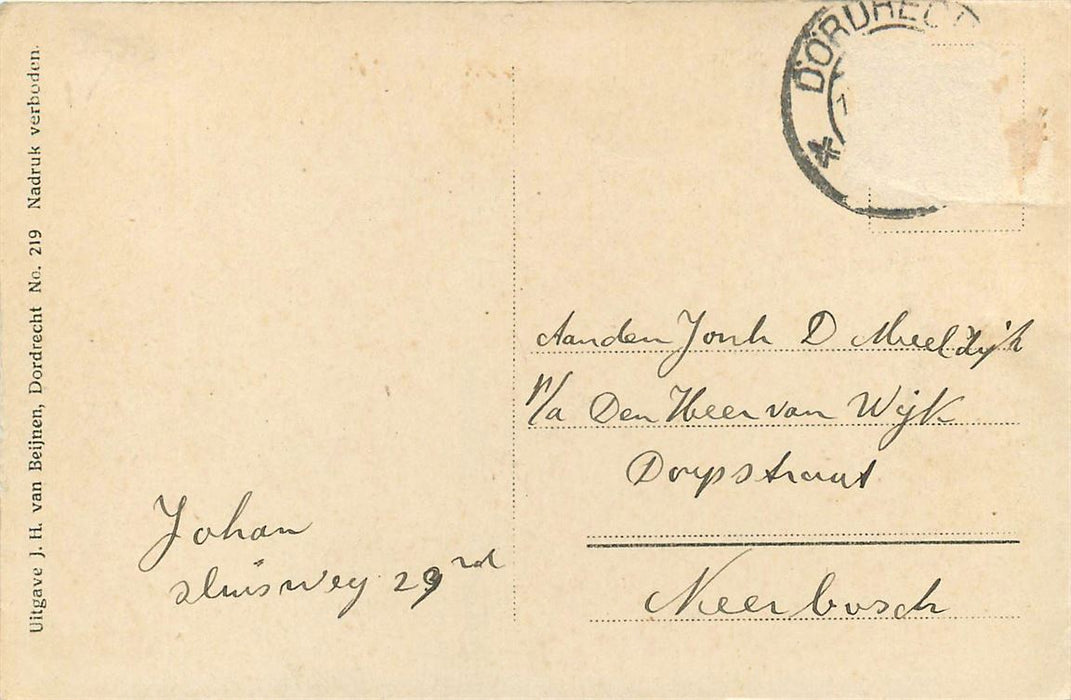 Uitgave J. H. van Beijnen, Dordrecht No. 219 Nadruk verboden.
DORDRECT
Aan den Jonh D Meeldijk
p/a Den Heer van Wijk
Dorpstraat
Neerbosch
Johan
Sluisweg 29 rd